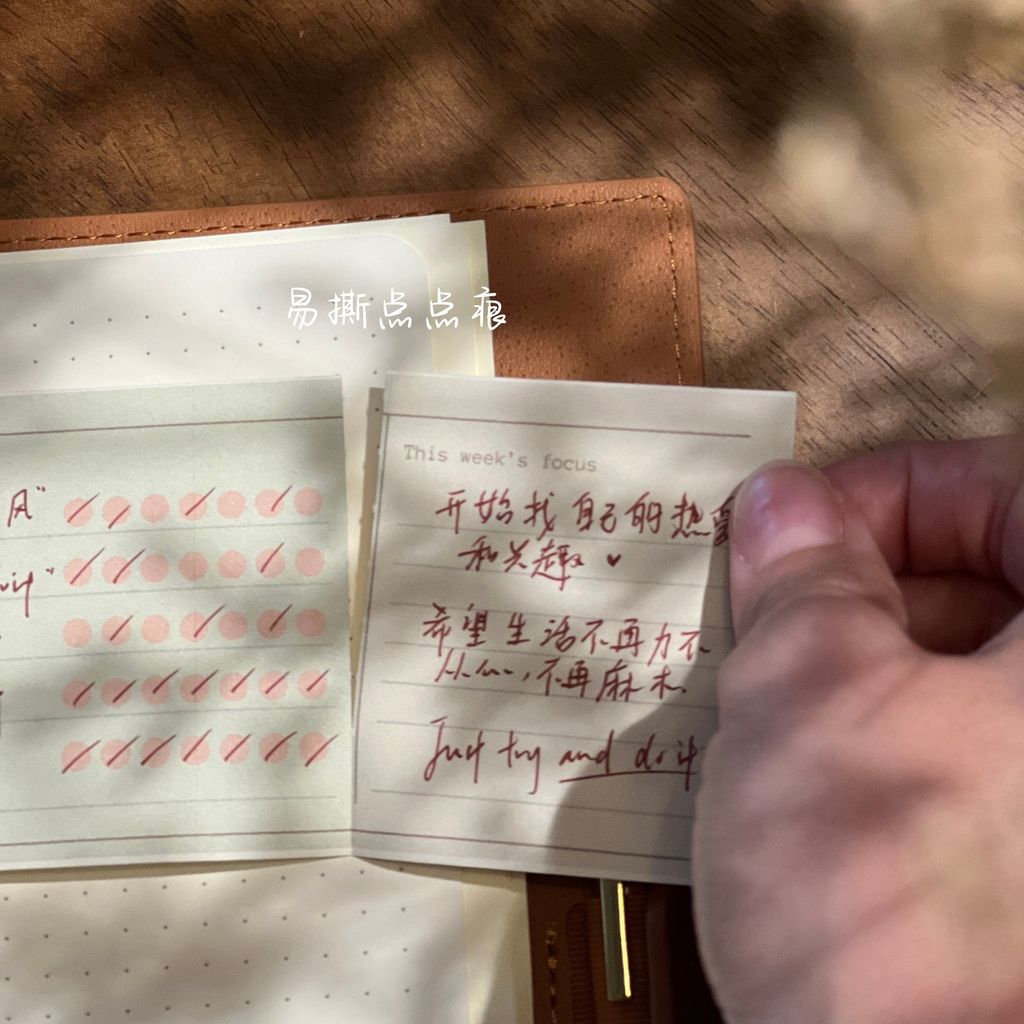 易撕点点痕
This week's focus
开始找自己的热爱
和兴趣 ♥
希望生活不再力不
从心,不再麻木.
Just try and do it